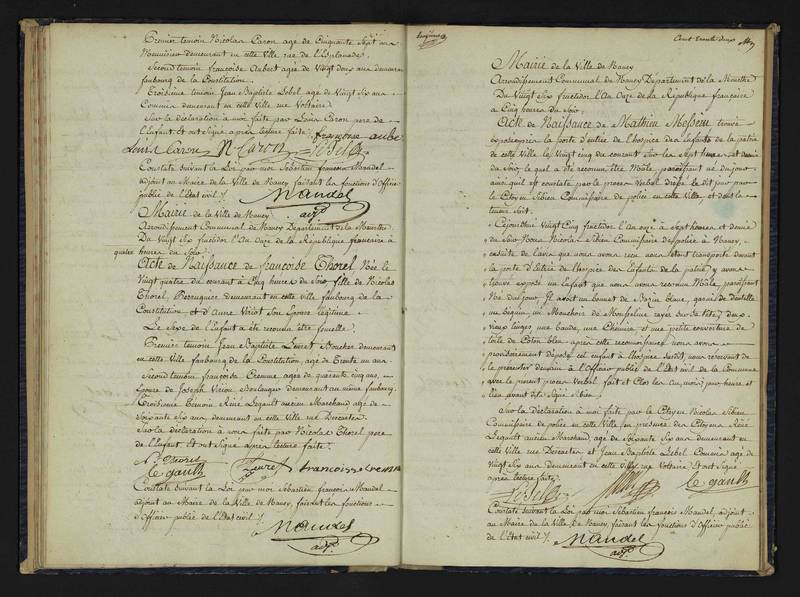 Premier temoin Nicolas Caron age de Cinquante Sept ans
Menuisier demeurant en cette Ville rue de l'Esplanade.
Second temoin françoise Aubert agée de Vingt Deux ans demeurant
faubourg de la Constitution.
Troisieme temoin Jean Baptiste Lebel age de Vingt Six ans
Commis demeurant en cette Ville rue Voltaire
Sur la déclaration a moi faite par Louis Caron pere de
l'Enfant et ont Signé après lecture faite.
françoise aube
Louis Caron N. Caron Lebel
Constaté suivant la Loi par moi Sébastien françois Mandel
adjoint au Maire de la Ville de Nancy faisant les fonctions d'Officier
public de l'Etat civil.
Mandel
adj.
Mairie de la Ville de Nancy
Arrondissement Communal de Nancy Département de la Meurthe
Du Vingt Six fructidor l'An Onze de la République française a
quatre heures du Soir
Acte de Naissance de françoise Thorel Née le
Vingt quatre du courant a Cinq heures du Soir fille de Nicolas
Thorel, Perruquier demeurant en cette ville faubourg de la
Constitution, et d'Anne Viriot son Epouse légitime.
Le Sexe de l'Enfant a été reconnu être femelle.
Premier temoin Jean Baptiste Boucher demeurant
en cette Ville faubourg de la Constitution, agé de Trente un ans
Second temoin françoise agée de quarante cinq ans,
Epouse de Joseph Boulanger demeurant au même faubourg.
Troisieme Temoin René Legault ancien Marchand age de
Soixante Six ans, demeurant en cette Ville rue Descartes
Sur la déclaration à moi faite par Nicolas Thorel pere
de l'Enfant. Et ont Signé après lecture faite.
le gault françoise
Constaté suivant la Loi par moi Sébastien françois Mandel
adjoint au Maire de la Ville de Nancy, faisant les fonctions
d'Officier public de l'Etat civil.
Mandel
adj.
Cent Trente deux
Mairie de la Ville de Nancy
Arrondissement Communal de Nancy Département de la Meurthe
Du Vingt Six fructidor l'An Onze de la République française
a Cinq heures du Soir.
Acte de Naissance de Mathieu Messein trouvé
exposé vers la porte d'entrée de l'hospice des Enfants de la patrie
de cette Ville le Vingt cinq du courant Sur les Sept heures et demie
du Soir, le quel a été reconnu être Mâle, paroissant né du jour
ainsi qu'il est constaté par le procès Verbal dressé le dit jour par
le Citoyen Sibien Commissaire de police en cette Ville et dont la
teneur suit.
Cejourd'hui Vingt Cinq fructidor l'An onze a Sept heures et demie
du Soir Nous Nicolas Sibien Commissaire de police à Nancy,
ensuite de l'avis que nous avons reçu nous étant transporté devant
la porte d'Entrée de l'hospice des Enfants de la patrie, y avons
trouvé exposé un Enfant que nous avons reconnu Mâle, paroissant
Né du jour Il avoit un bonnet de Bazin blanc, garni de Dentelle
un béguin, un Mouchoir de Mousseline rayée sur Sa tête, deux
vieux langes, une bande, une Chemise et une petite couverture de
toile de Coton bleu, après cette reconnoissance nous avons
provisoirement déposé cet enfant à l'hospice Susdit, nous réservant de
le présenter demain à l'Officier public de l'Etat civil de la Commune
avec le présent procès Verbal fait et Clos les an, mois, jour, heure et
lieu avant dits Signé Sibien.
Sur la déclaration à moi faite par le Citoyen Nicolas Sibien
Commissaire de police en cette Ville, en présence des Citoyens René
Legault ancien Marchand, age de Soixante Six ans demeurant en
cette Ville rue Descartes et Jean Baptiste Lebel Commis age de
Vingt Six ans demeurant en cette Ville, rue Voltaire, Et ont Signé
après lecture faite.
Lebel le gault
Constaté suivant la Loi par moi Sébastien françois Mandel, adjoint
au Maire de la Ville de Nancy, faisant les fonctions d'Officier public
de l'Etat civil.
Mandel
adj.